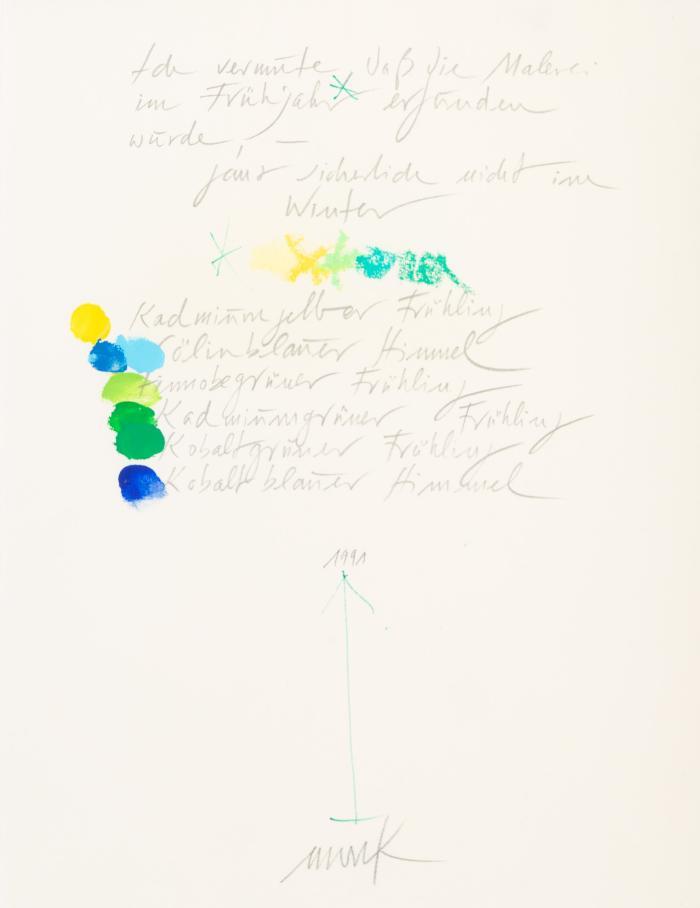 Ich vermute, daß die Malerei
im Frühjahr erfunden
wurde, –
ganz sicherlich nicht im
Winter
Kadmiumgelber Frühling
Cölinblauer Himmel
Zinnobergrüner Frühling
Kadmiumgrüner Frühling
Kobaltgrüner Frühling
Kobaltblauer Himmel
1991